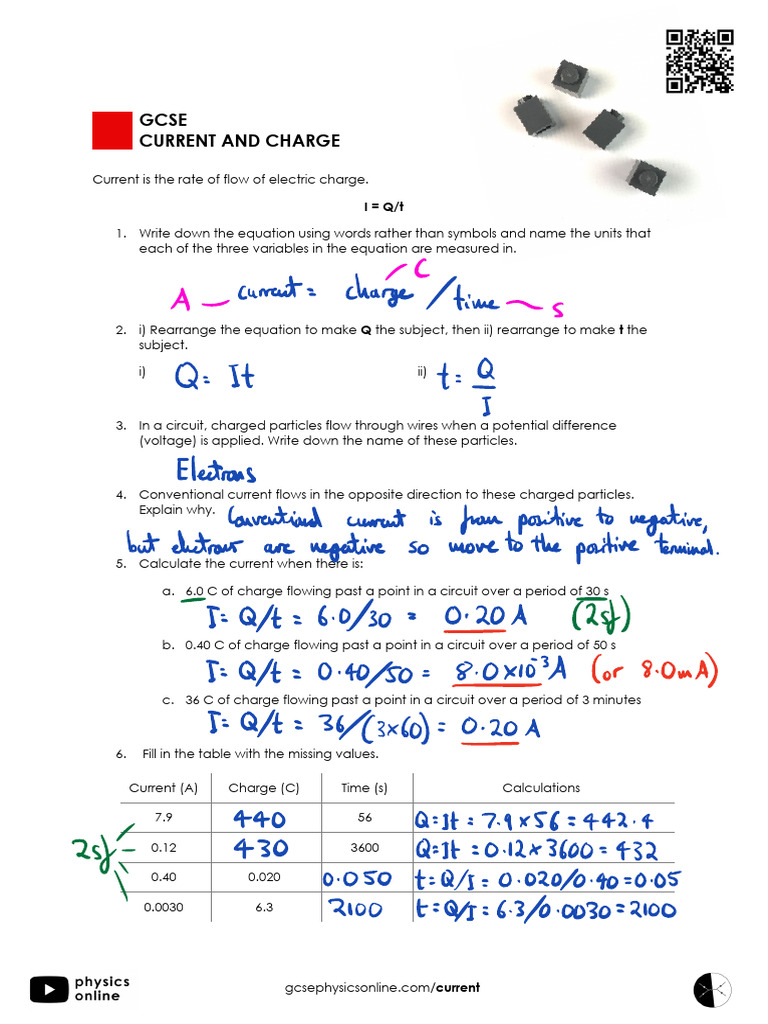 GCSE
CURRENT AND CHARGE
Current is the rate of flow of electric charge.
I = Q/t
1. Write down the equation using words rather than symbols and name the units that
each of the three variables in the equation are measured in.
C
A current = charge / time s
2. i) Rearrange the equation to make Q the subject, then ii) rearrange to make t the
subject.
i) Q = It ii) t = Q/I
3. In a circuit, charged particles flow through wires when a potential difference
(voltage) is applied. Write down the name of these particles.
Electrons
4. Conventional current flows in the opposite direction to these charged particles.
Explain why. Conventional current is from positive to negative,
but electrons are negative so move to the positive terminal.
5. Calculate the current when there is:
a. 6.0 C of charge flowing past a point in a circuit over a period of 30 s
I = Q/t = 6.0/30 = 0.20 A (2sf)
b. 0.40 C of charge flowing past a point in a circuit over a period of 50 s
I = Q/t = 0.40/50 = 8.0×10⁻³ A (or 8.0mA)
c. 36 C of charge flowing past a point in a circuit over a period of 3 minutes
I = Q/t = 36/(3×60) = 0.20 A
6. Fill in the table with the missing values.
Current (A) Charge (C) Time (s) Calculations
7.9 440 56 Q=It = 7.9 × 56 = 442.4
2sf 0.12 430 3600 Q=It = 0.12 × 3600 = 432
0.40 0.020 0.050 t = Q/I = 0.020/0.40 = 0.05
0.0030 6.3 2100 t = Q/I = 6.3/0.0030 = 2100
physics
online
gcsephysicsonline.com/current